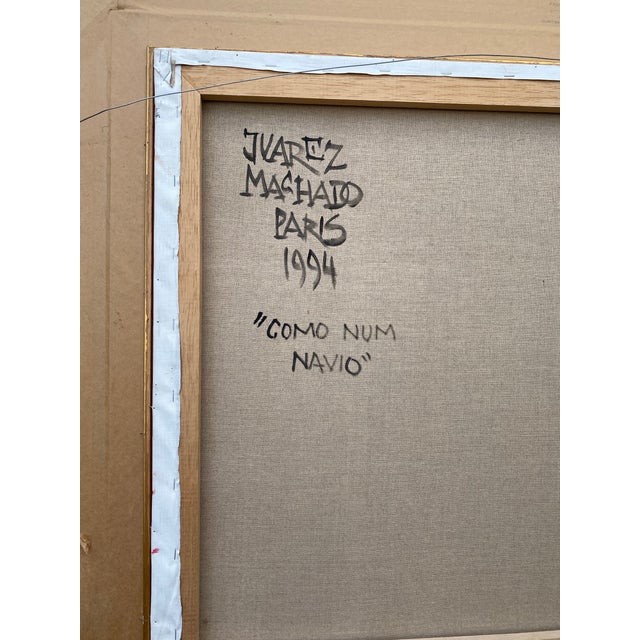 JUAREZ
MACHADO
PARIS
1994
"COMO NUM
NAVIO"